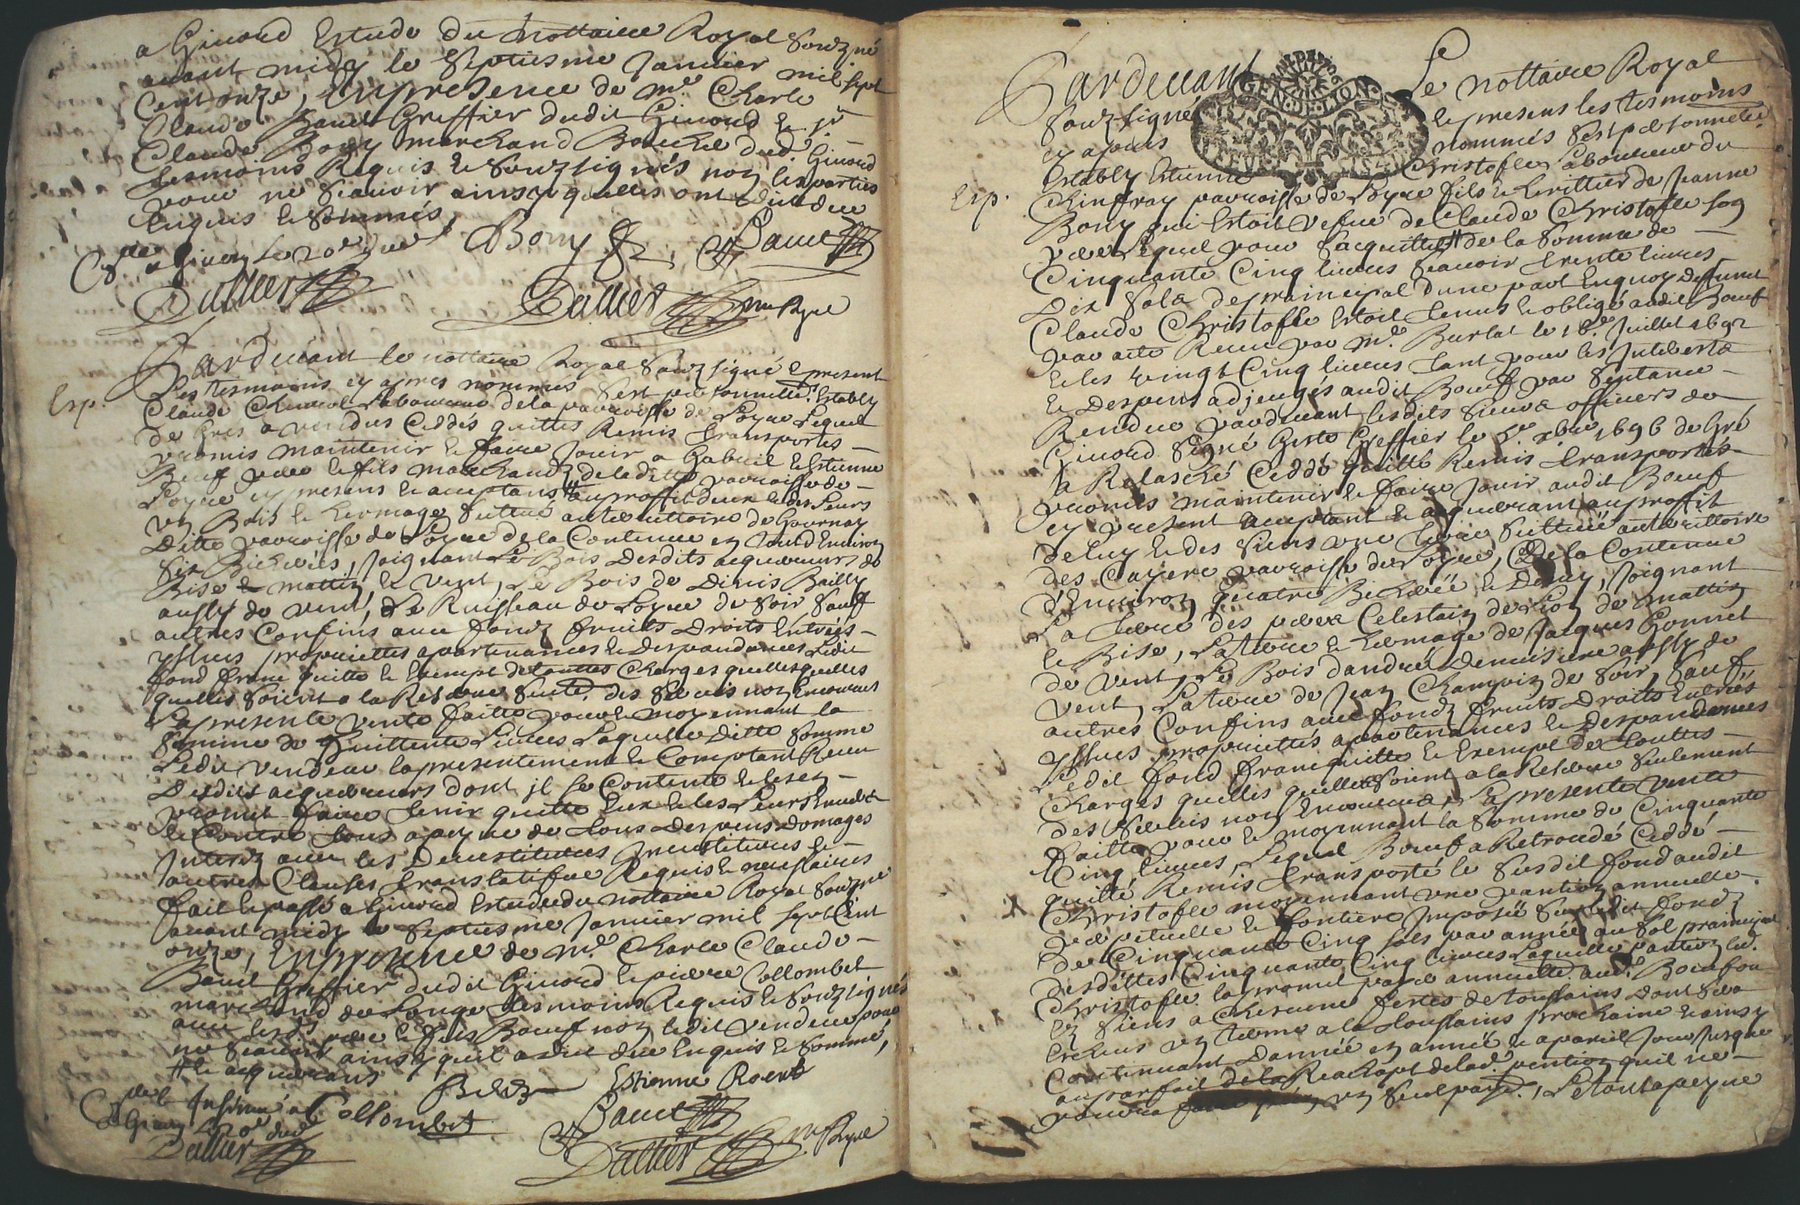 a Givord Estude du nottaire Royal souzné
avant midy le septiesme Janvier mil sept
Cent onze, En presence de mr. Charle
Claude Baud Greffier dudit Givord & sr.
Claude Bony marchand Boucher dud. Givord
tesmoins Requis & souzsignés non les parties
pour ne scavoir ainsy quelles ont dit de ce
Enquis & sommés
Bony Baud
Dallier Dallier nre Royal
Pardevant le nottaire Royal souzsigné & present
Exp.
les tesmoins cy apres nommés sest personnellemt. Estably
Claude laboureur de la parroisse de Loyre Lequel
de Gres a vendus Ceddés quittés Remis transportés
promis maintenir & faire Jouir a Gabriel & Estienne
Boeuf pere & fils marchandz de laditte parroisse de
Loyre cy presens & acceptans au proffit deux & des leurs
un Bois & hermage scittué au territoire de Gournay
ditte parroisse de Loyre de la Contenue en tout Environ
six Bicherées, Joignant le Bois desdits acquereurs de
Bise & mattin & vent, le Bois de Denis Bailly
aussy de vent, & le Ruisseau de Loyre de soir sauf
autres Confins avec fondz fruits Droits Entrées
yssues propriettés apartenances & despandances ledit
fond franc quitte & Exempt de touttes Charges quelles quelles
quelles soient a la Reserve seule des servis non Encourus
La presente vente faitte pour & moyennant la
somme de Livres Laquelle ditte somme
Ledit vendeur a presentement & Comptant Receu
Desdits acquereurs dont il se Contente & les en
promet faire tenir quitte Eux & les Leurs Envers
& Contre tous a peyne de tous despens Domages
Interez avec les Devestitures Investitures &
autres Clauses translatifve Requis & necessaires
fait & passé a Givord Estude du nottaire Royal souzné
avant midy le septiesme Janvier mil sept Cent
onze, En presence de mr. Charle Claude
Baud Greffier dudit Givord & pierre Collombet
marchand de Longe tesmoins Requis & souzsignés
avec lesds. pere & fils Boeuf non ledit vendeur pour
ne scavoir ainsy quil a dit de ce Enquis & sommé,
# & acquerans
Estienne
Collombet Baud
Dallier Dallier nre Royal
GEN. DE LION
Pardevant Le nottaire Royal
souzsigné & presens les tesmoins
cy apres nommés sest personnellemt.
Estably Estienne Christofle Laboureur du
Exp.
Chinfray parroisse de Loyre fils & heritier de Jeanne
Bony qui Estoit vefve de Claude Christofle son
pere Lequel pour sacquitter de la somme de
Cinquante Cinq livres scavoir trente livres
Dix sols de principal dune part Enquoy deffunt
Claude Christofle Estoit tenu & obligé audit Boeuf
par acte Receu par mr. Burlat le 18e. Juillet 1692
& les vingt Cinq livres tant pour les Interestz
& Despens adjeugés audit Boeuf par sentance
Rendue pardevant lesdits sieurs officiers de
Givord signé Greffier le xbre 1696 de Gré
a Relasché Ceddé quitté Remis transporté
promis maintenir & faire Jouir audit Boeuf
cy present acceptant & acquerant au proffit
de luy & des siens une terre scittuée au territoire
des Cayere parroisse de Loyre, & de la Contenue
d'Environ quatre Bicherée & Demy, Joignant
La terre des peres Celestins de Lion de mattin
& Bise, La terre & hermage de Jacques Gonnet
de vent, Le Bois dandré aussy de
vent, La terre de Jean Champin de soir, sauf
autres Confins avec fondz fruits Droits Entrées
yssues proprietés apartenances & Despandances
Ledit fond franc quitte & Exempt de touttes
Charges quelles quelles soient a la Reserve seulement
des servis non Encourus, La presente vente
faitte pour & moyennant la somme de Cinquante
Cinq livres, Lequel Boeuf a Retroudé Ceddé
quitté Remis transporté le susdit fond audit
Christofle moyennant une pantion annuelle
perpetuelle & fontiere Imposée sur ledit fondz
de Cinquante Cinq sols par année au sol principal
desdittes Cinquante Cinq livres Laquelle pantion led.
Christofle promet payer annuellemt. aud. Boeuf ou
Es siens a Chescune festes de toussains dont sera
Escheus un terme a la toussains prochaine & ainsy
Continuant d'année en année & a pareil Jour Jusques
au parfait Reachapt de lad. pention quil ne
pourra un seul paye., & tout a peyne